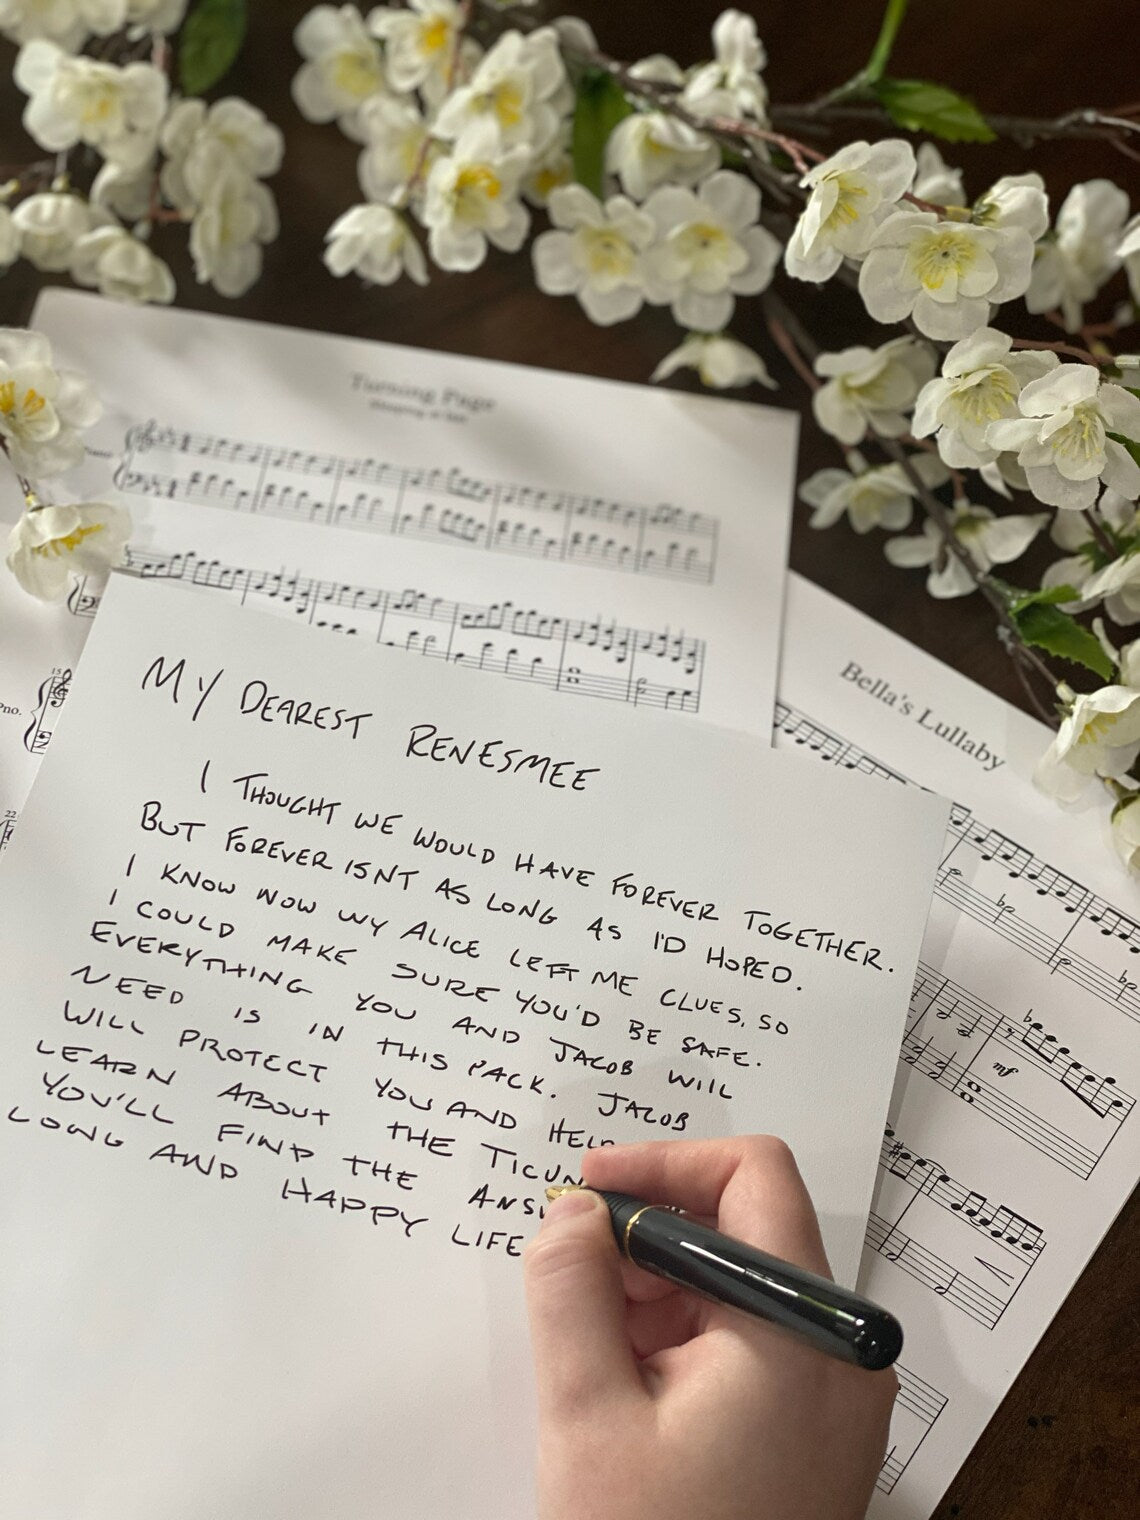 Turning Page
Bella's Lullaby
15
Pno.
22
mf
MY DEAREST RENESMEE
I THOUGHT WE WOULD HAVE FOREVER TOGETHER.
BUT FOREVER ISNT AS LONG AS I'D HOPED.
I KNOW NOW WY ALICE LEFT ME CLUES, SO
I COULD MAKE SURE YOU'D BE SAFE.
EVERYTHING YOU AND JACOB WILL
NEED IS IN THIS PACK. JACOB
WILL PROTECT YOU AND
LEARN ABOUT THE
YOU'LL FIND THE
LONG AND HAPPY LIFE